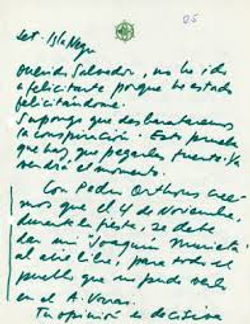 25
set. Isla Negra
Querido Salvador, no he ido
a felicitarte porque he estado
felicitándome.
Supongo que desbarataremos
la conspiración. Esto prueba
que hay que pegarles fuerte. Ya
vendrá el momento.
Con Pedro Orthous cree-
mos que el 4 de Noviembre,
durante la fiesta, se debe
dar mi "Joaquín Murieta"
al aire libre, para todo el
pueblo que no pudo verlo
en el A. Varas.
Tu opinión es decisiva